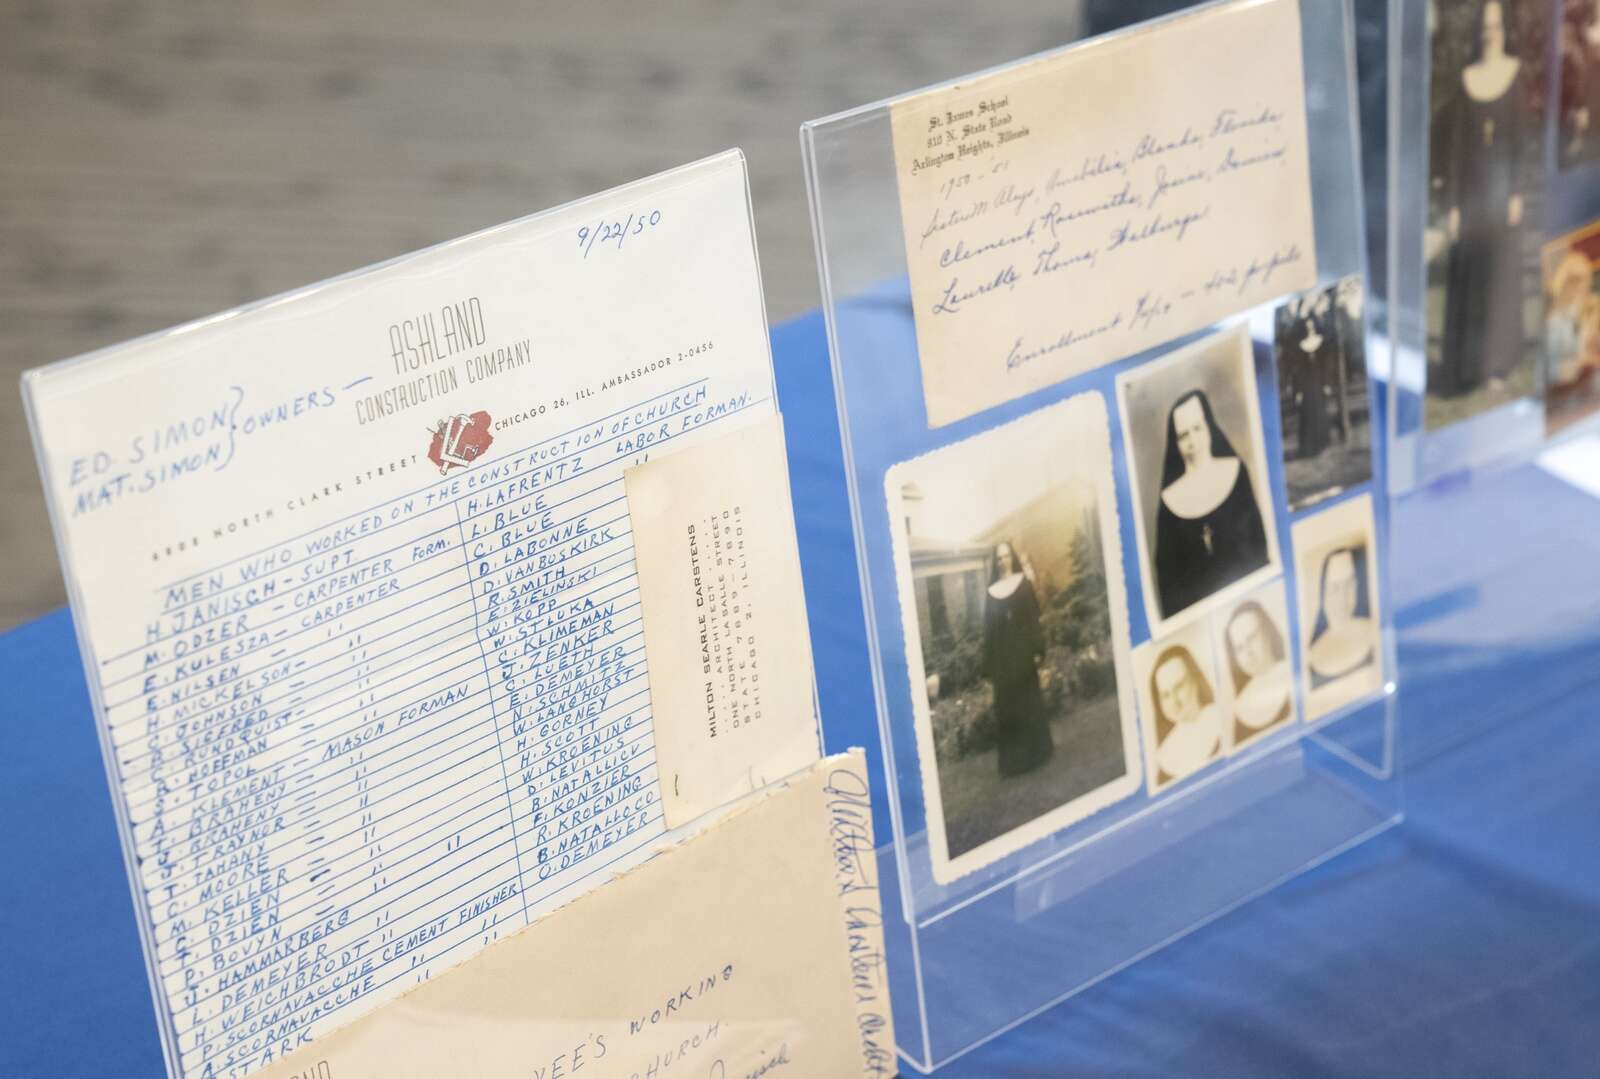 9/22/50
ASHLAND
CONSTRUCTION COMPANY
ED. SIMON
MAT. SIMON } OWNERS —
6808 NORTH CLARK STREET CHICAGO 26, ILL. AMBASSADOR 2-0456
MEN WHO WORKED ON THE CONSTRUCTION OF CHURCH
H. JANISCH - SUPT.
M. ODZER - CARPENTER FORM.
E. KULESZA - CARPENTER
E. NILSEN — "
H. MICKELSON - "
C. JOHNSON — "
B. SIEFRED — "
C. RUNDQUIST - "
R. HOFFMAN — "
S. TOPOL — MASON FORMAN
A. KLEMENT — "
T. BRAHENY — "
J. BRAHENY — "
J. TRAYNOR — "
T. TAHANY — "
C. MOORE — "
M. KELLER — "
C. DZIEN — "
T. DZIEN — "
P. BOVYN — "
J. HAMMARBERG "
L. DEMEYER "
H. WEICHBRODT CEMENT FINISHER
P. SCORNAVACCHE "
A. SCORNAVACCHE "
STARK "
H. LAFRENTZ LABOR FORMAN.
L. BLUE "
C. BLUE
D. LABONNE
D. VANBUSKIRK
R. SMITH
E. ZIELINSKI
W. KOPP
W. STLUKA
C. KLIMEMAN
J. ZENKER
C. LUETH
E. DEMEYER
N. SCHMITZ
W. LANGHORST
H. GORNEY
H. SCOTT
W. KROENING
D. LEVITUS
B. NATALLICU
F. KONZIER
R. KROENING
B. NATALLOCO
O. DEMEYER
MILTON SEARLE CARSTENS
ARCHITECT
ONE NORTH LA SALLE STREET
STATE 2-7889-7890
CHICAGO 2, ILLINOIS
VEE'S WORKING
CHURCH.
St. James School
810 N. State Road
Arlington Heights, Illinois
1950-'51
Sister M. Aloys, Amabilis, Blanka, Florida
Clement, Roswitha, Josine,
Laurella, Thoma, Walburga
Enrollment